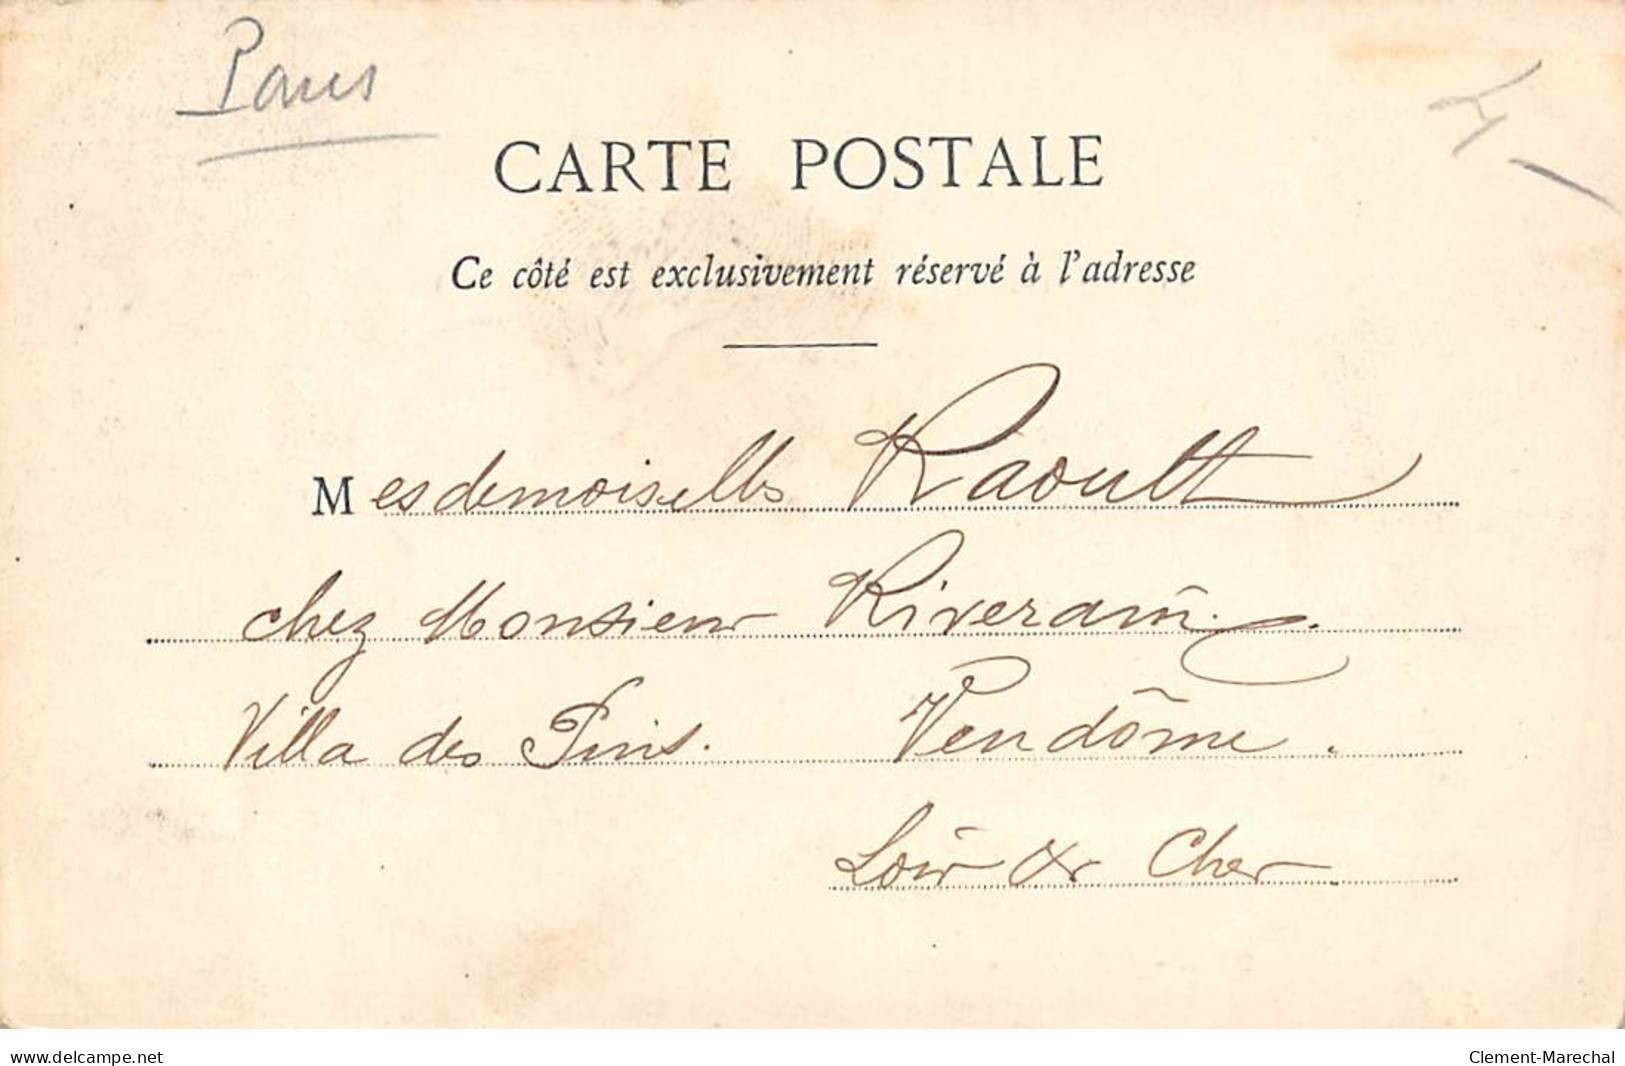 Paris
CARTE POSTALE
Ce côté est exclusivement réservé à l'adresse
Mesdemoiselles Raoult
chez Monsieur Riverain
Villa des Pins. Vendôme.
Loir & Cher
www.delcampe.net
Clement-Marechal